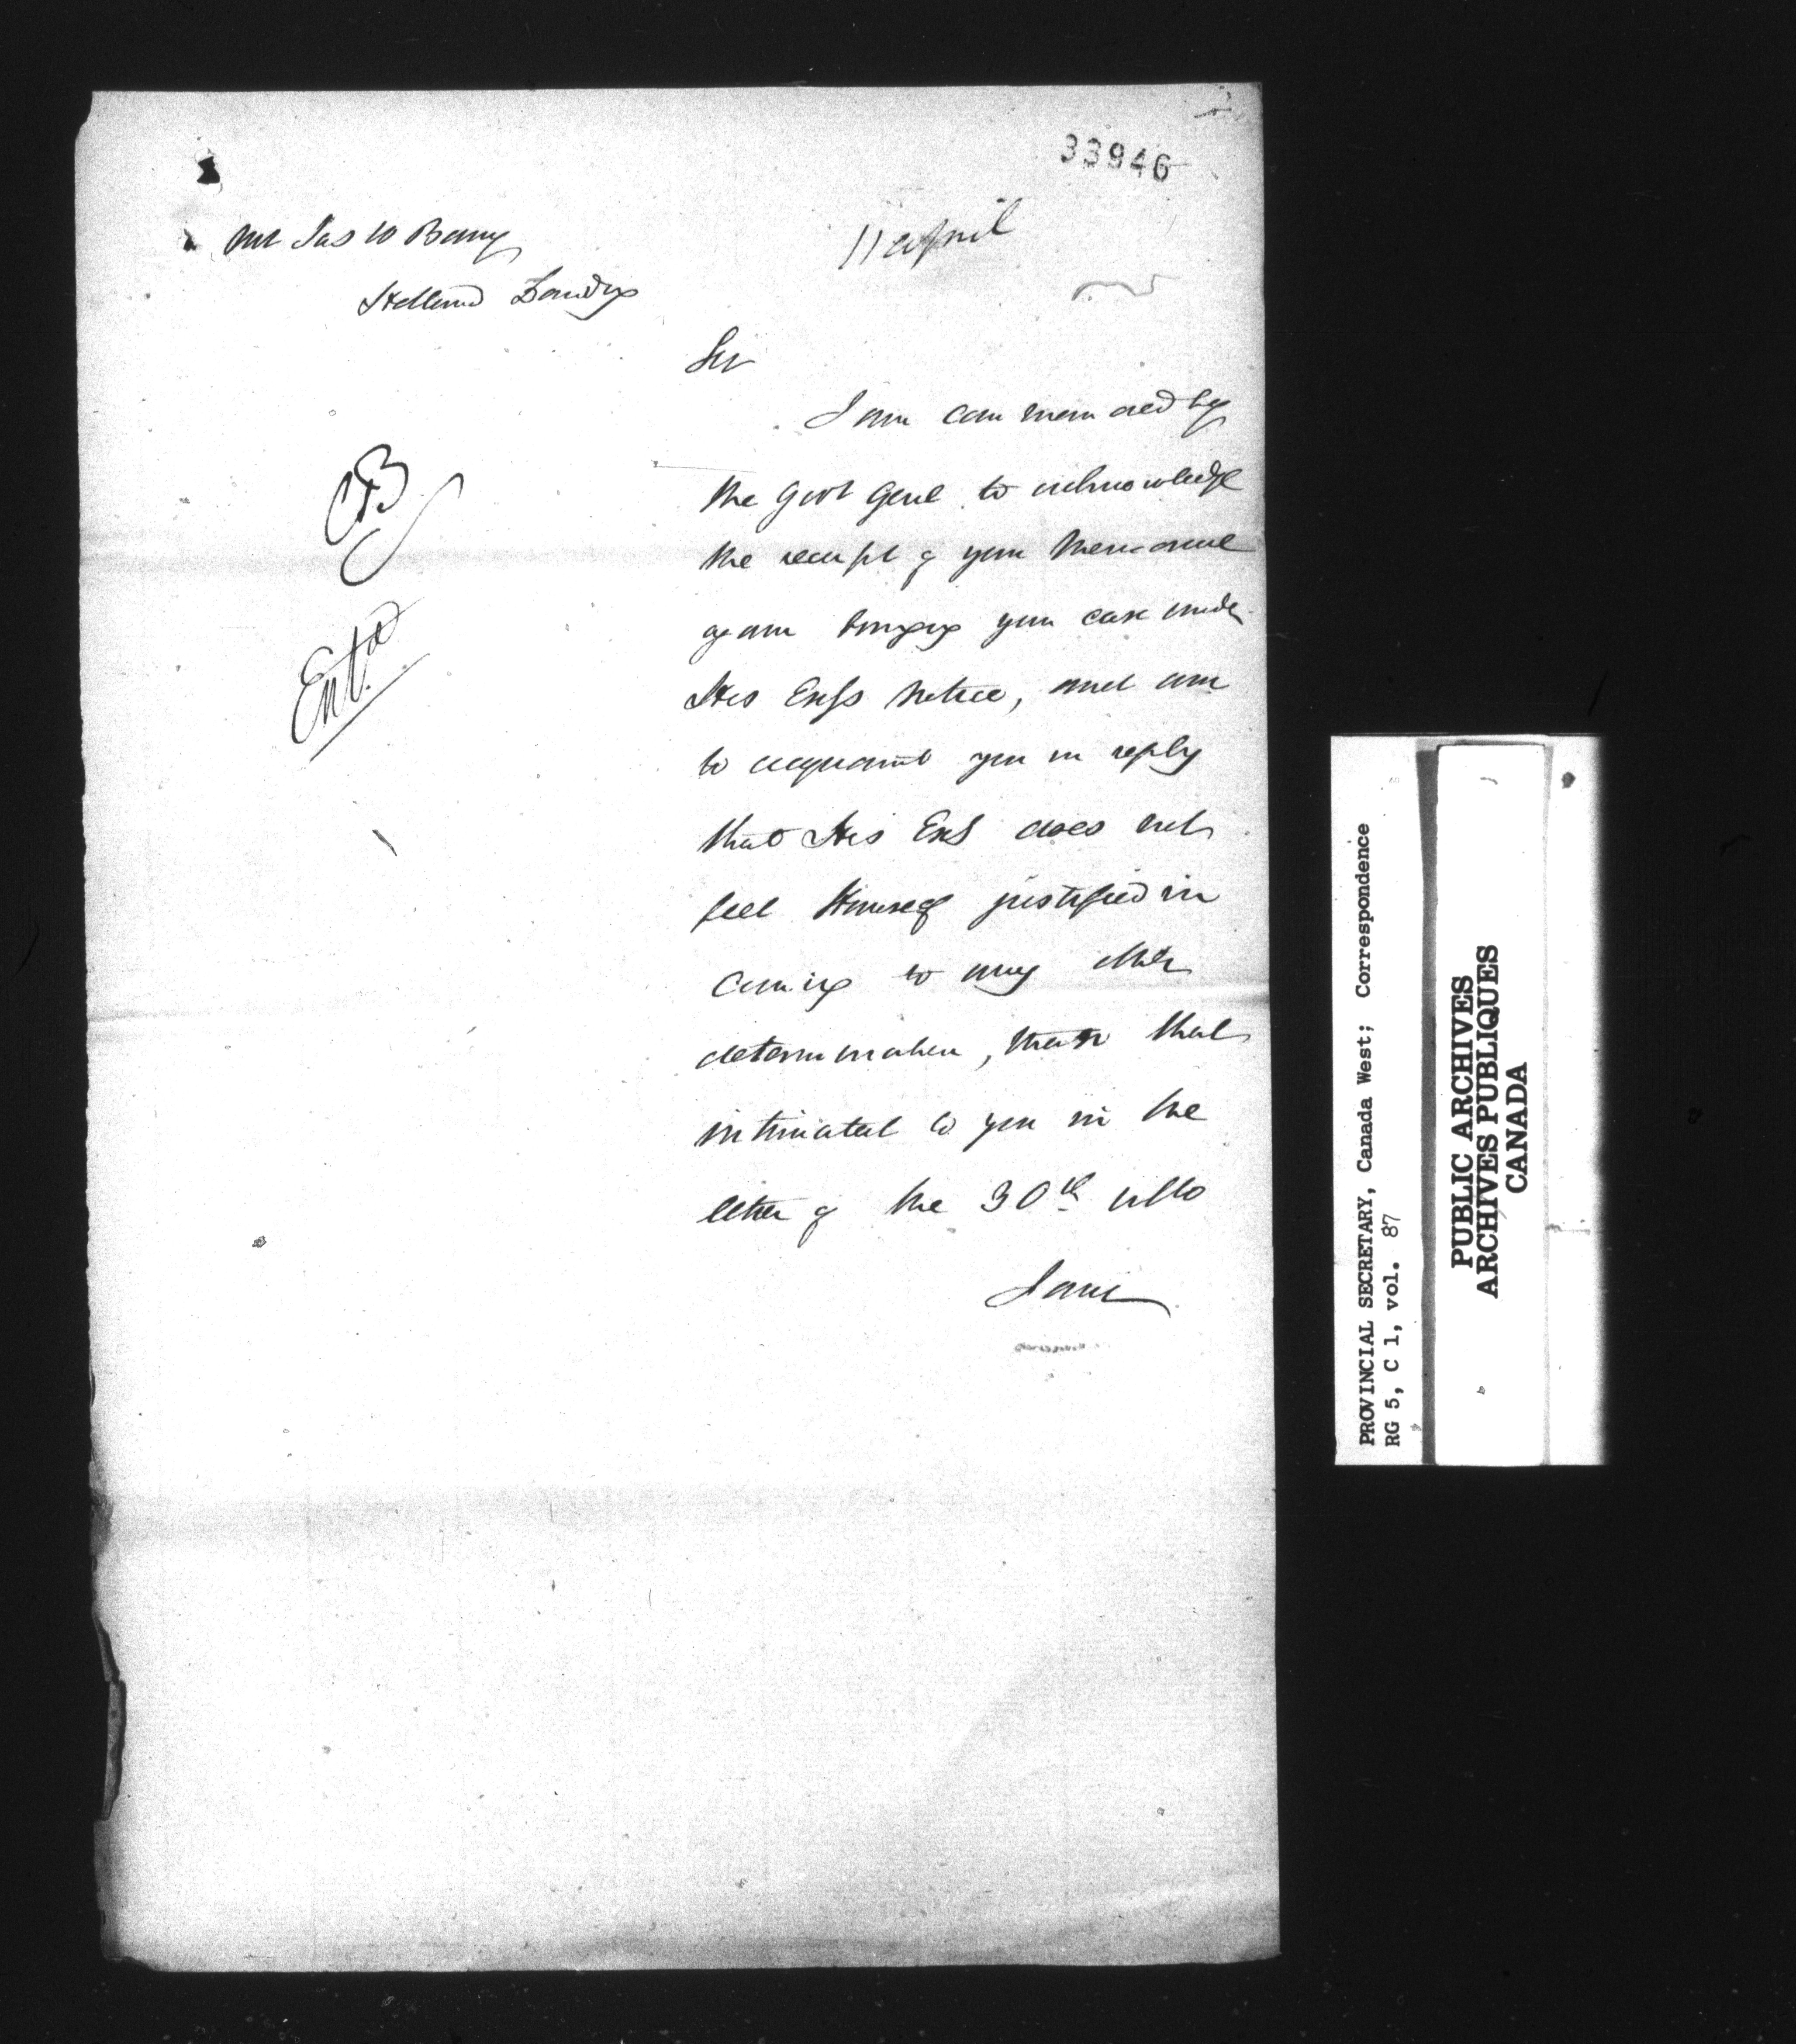 33946
Mr Jas W Barry
Holland Landing
11 April
Sir
I am commanded by
the Govr Genl to acknowledge
the receipt of your Memorial
again bringing your case under
His Exy's notice, and am
to acquaint you in reply
that His Exy does not
feel Himself justified in
coming to any other
determination, than that
intimated to you in the
letter of the 30th ulto
I am
Entd
PROVINCIAL SECRETARY, Canada West; Correspondence
RG 5, C 1, vol. 87
PUBLIC ARCHIVES
ARCHIVES PUBLIQUES
CANADA